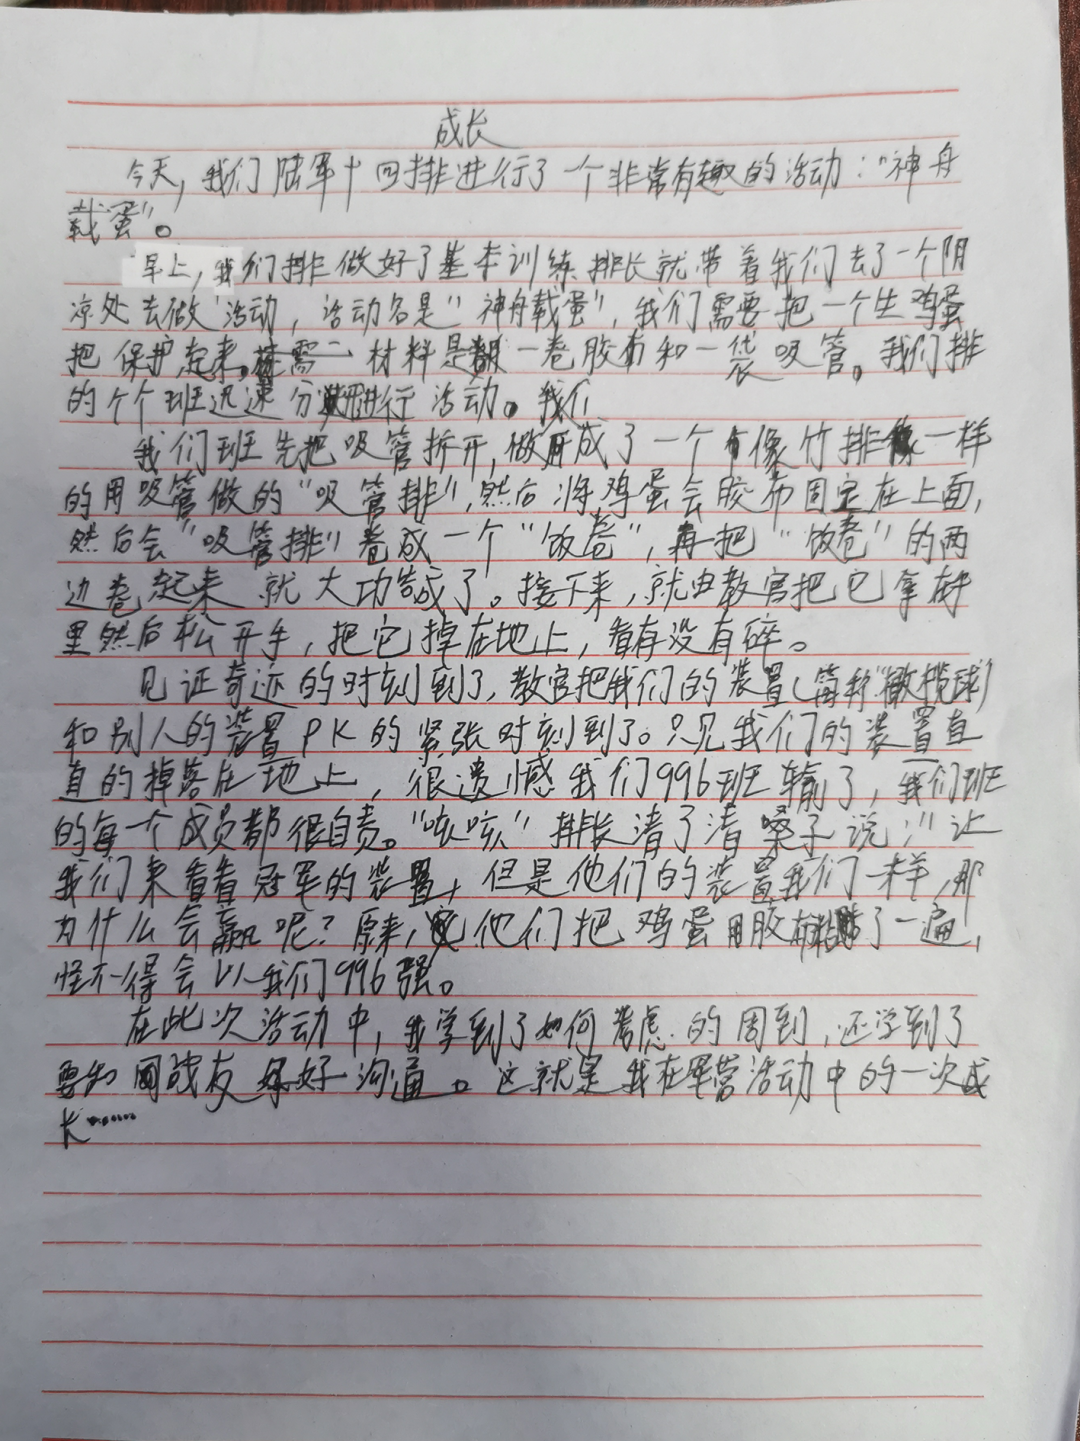 成长
今天,我们陆军十四排进行了一个非常有趣的活动:"神舟
载蛋"。
早上,我们排做好了基本训练排长就带着我们去了一个阴
凉处去做活动,活动名是"神舟载蛋",我们需要把一个生鸡蛋
把保护起来。需材料是一卷胶布和一袋吸管。我们排
的个个班迅速分进行活动。我们
我们班先把吸管拆开,做成了一个像竹排一样
的用吸管做的"吸管排",然后将鸡蛋会胶布固定在上面,
然后会"吸管排"卷成一个"饭卷",再把"饭卷"的两
边卷起来就大功告成了。接下来,就由教官把它拿在手
里然后松开手,把它掉在地上,看有没有碎。
见证奇迹的时刻到了,教官把我们的装置(简称"橄榄球")
和别人的装置PK的紧张时刻到了。只见我们的装置直
直的掉落在地上,很遗憾我们996班输了,我们班
的每一个成员都很自责。"咳咳"排长清了清嗓子说:"让
我们来看看冠军的装置,但是他们的装置我们一样,那
为什么会赢呢?原来,他们把鸡蛋用胶布粘了一遍,
怪不得会以我们996强。
在此次活动中,我学到了如何考虑的周到,还学到了
要和同战友好好沟通。这就是我在军营活动中的一次成
长……